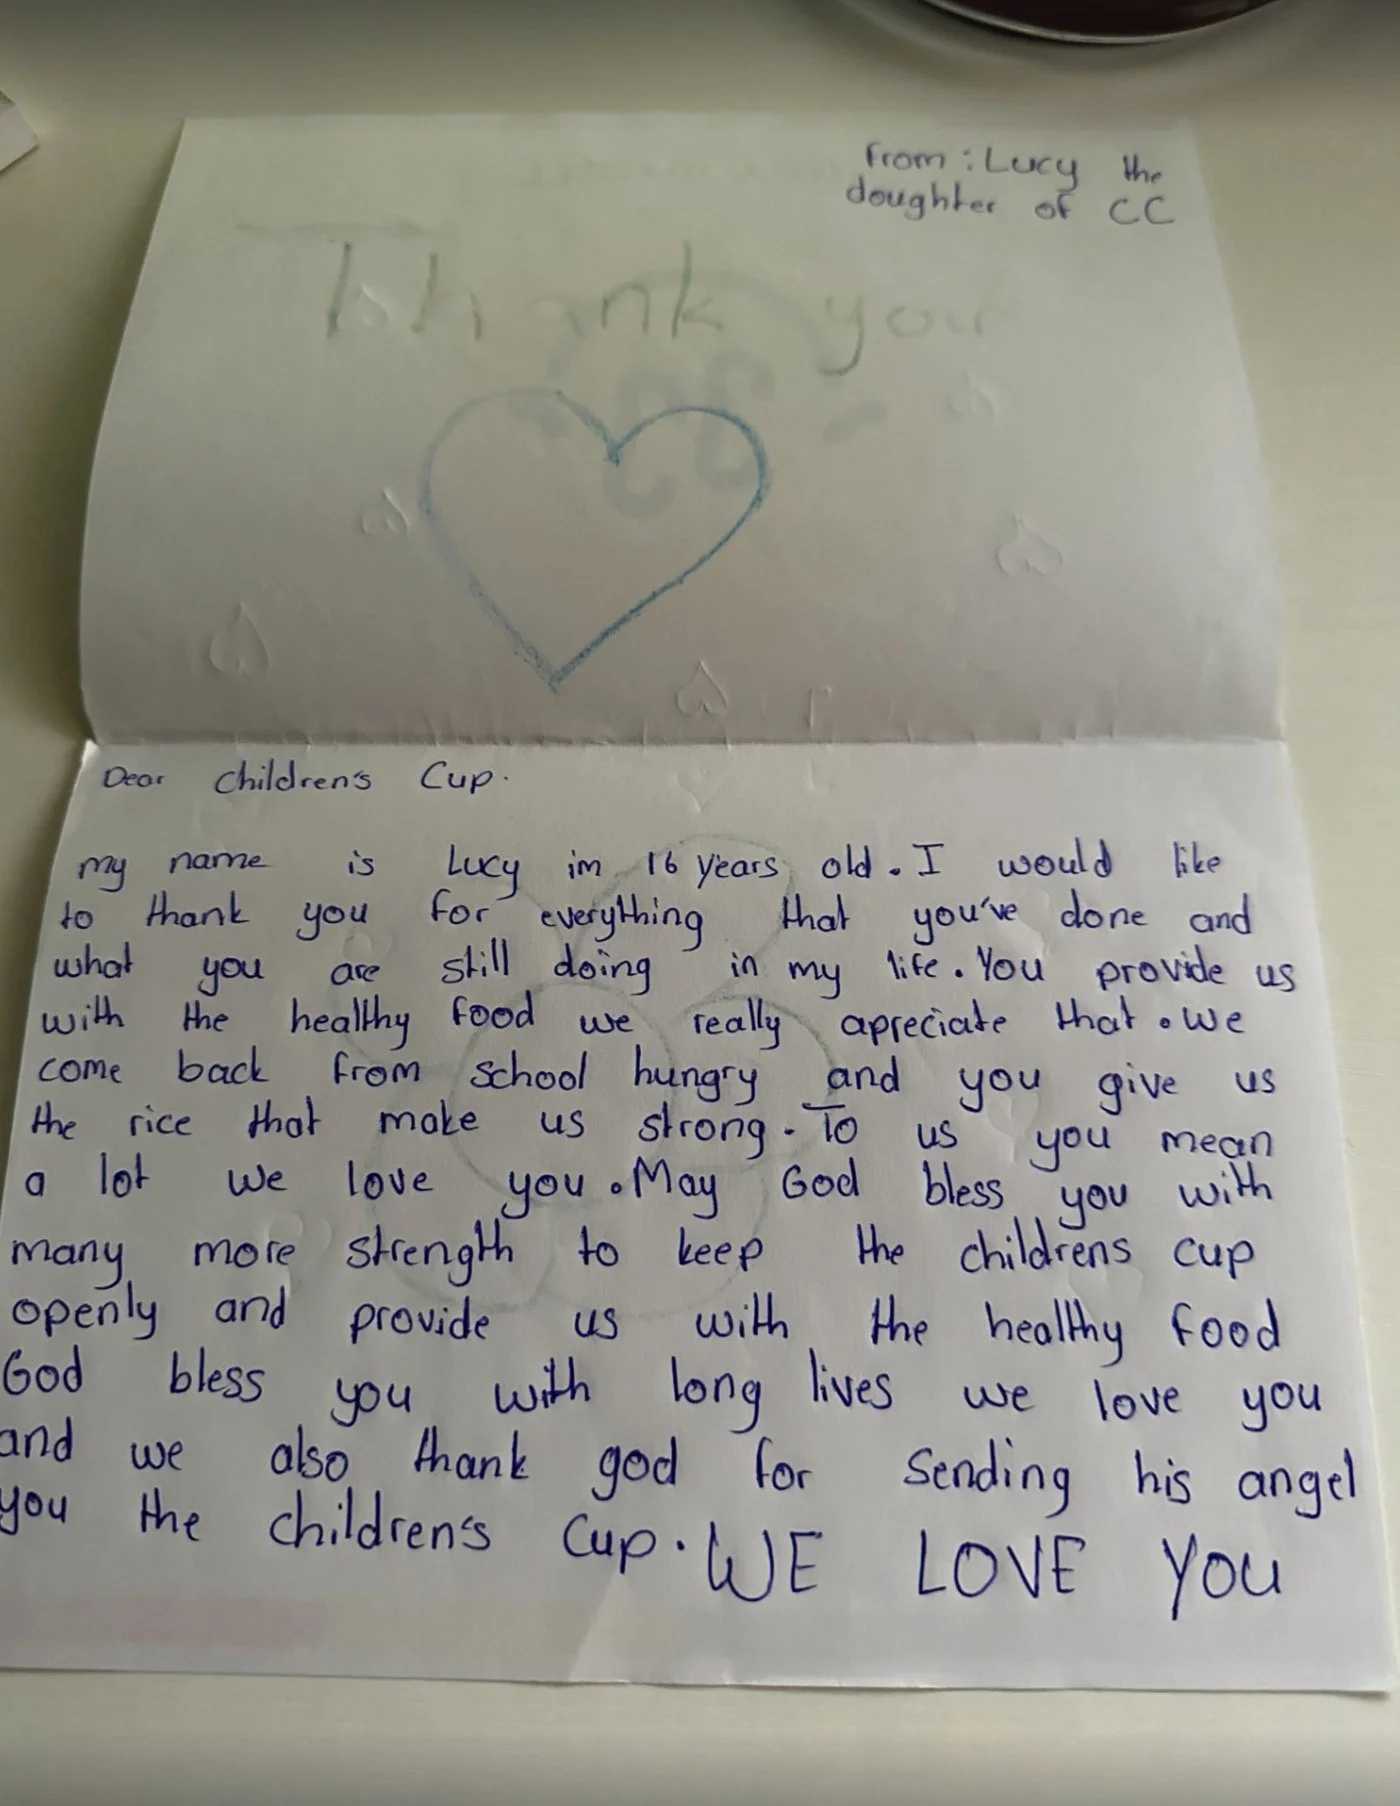 From : Lucy the
doughter of CC
Thank you
Dear Children's Cup.
my name is Lucy im 16 years old. I would like
to thank you for everything that you've done and
what you are still doing in my life. You provide us
with the healthy food we really apreciate that. We
come back from school hungry and you give us
the rice that make us strong. To us you mean
a lot we love you. May God bless you with
many more strength to keep the childrens cup
openly and provide us with the healthy food
God bless you with long lives we love you
and we also thank god for sending his angel
you the children's Cup. WE LOVE YOU